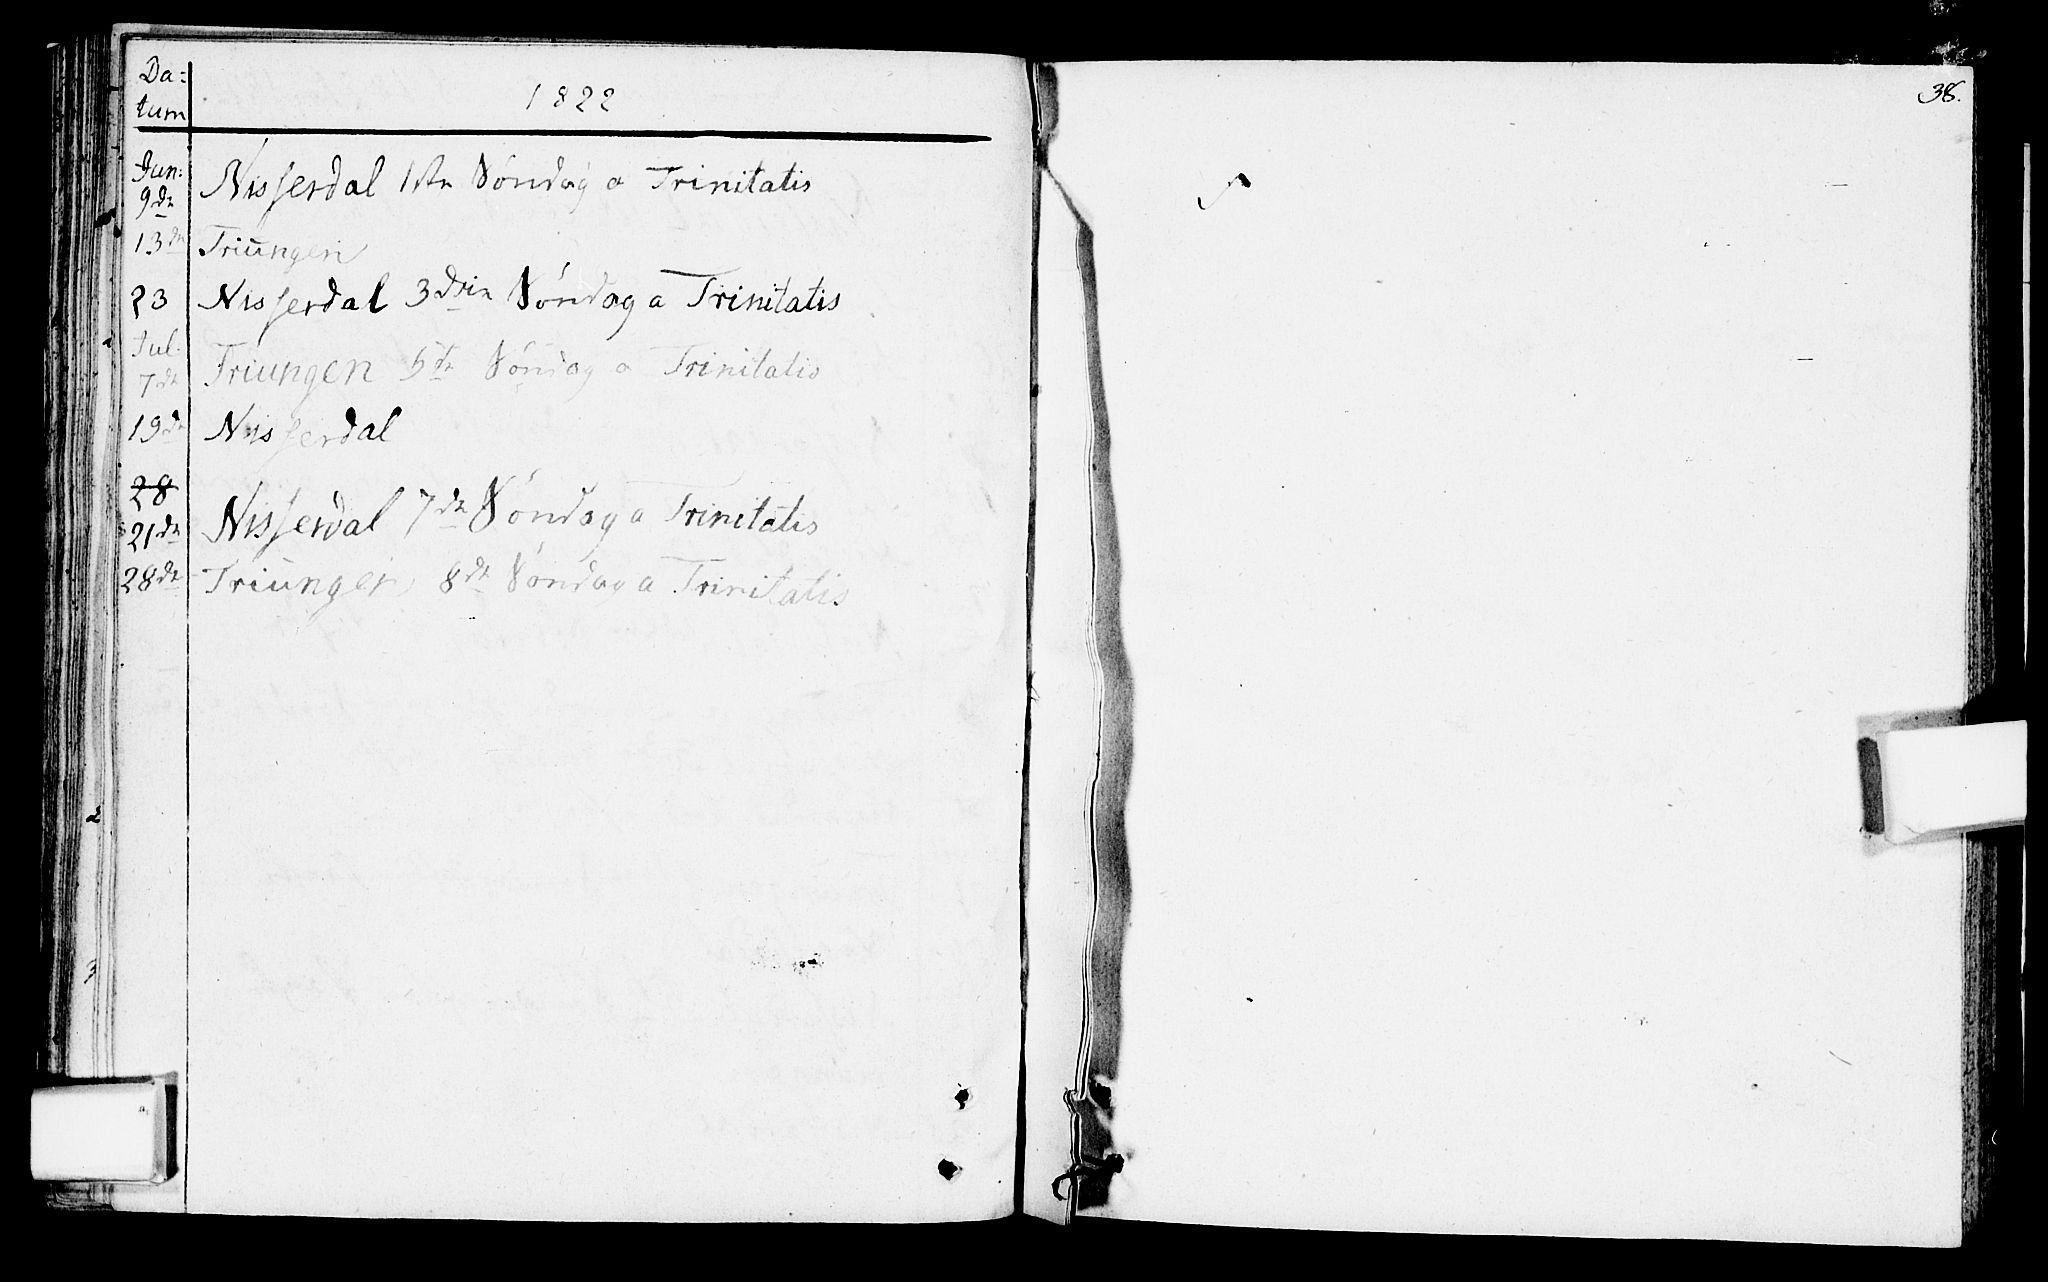 Da=
tum
1822
Jun:
9de Nisserdal 1ste Søndag a Trinitatis
13de Triungen
23 Nisserdal 3die Søndag a Trinitatis
Jul.
7de Triungen 5te Søndag a Trinitatis
19de Nisserdal
28
21de Nisserdal 7de Søndag a Trinitatis
28de Triungen 8de Søndag a Trinitatis
38.